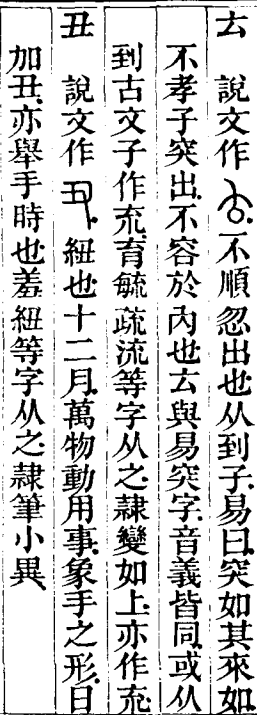 𠫓 說文作𠫓不順忽出也从到子易曰突如其來如
不孝子突出不容於內也𠫓與易突字音義皆同或从
到古文子作㐬育毓疏流等字从之隷變如上亦作㐬
丑 說文作丑紐也十二月萬物動用事象手之形日
加丑亦舉手時也羞紐等字从之隷筆小異